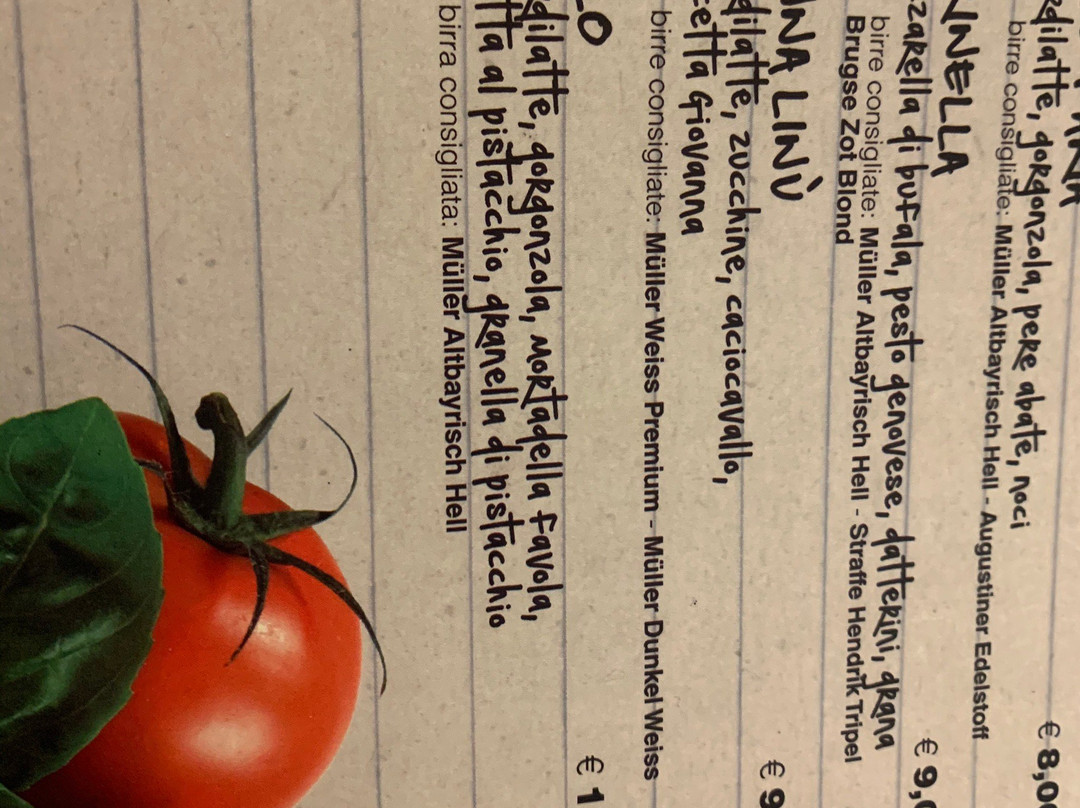 rdilatte, gorgonzola, pere abate, noci
birre consigliate: Müller Altbayrisch Hell - Augustiner Edelstoff
€ 8,0
NNELLA
zzarella di bufala, pesto genovese, datterini, grana
birre consigliate: Müller Altbayrisch Hell - Straffe Hendrik Tripel
Brugse Zot Blond
€ 9,
NNA LINÙ
dilatte, zucchine, caciocavallo,
cetta Giovanna
birre consigliate: Müller Weiss Premium - Müller Dunkel Weiss
€ 9
LO
dilatte, gorgonzola, mortadella favola,
tta al pistacchio, granella di pistacchio
birra consigliata: Müller Altbayrisch Hell
€ 1